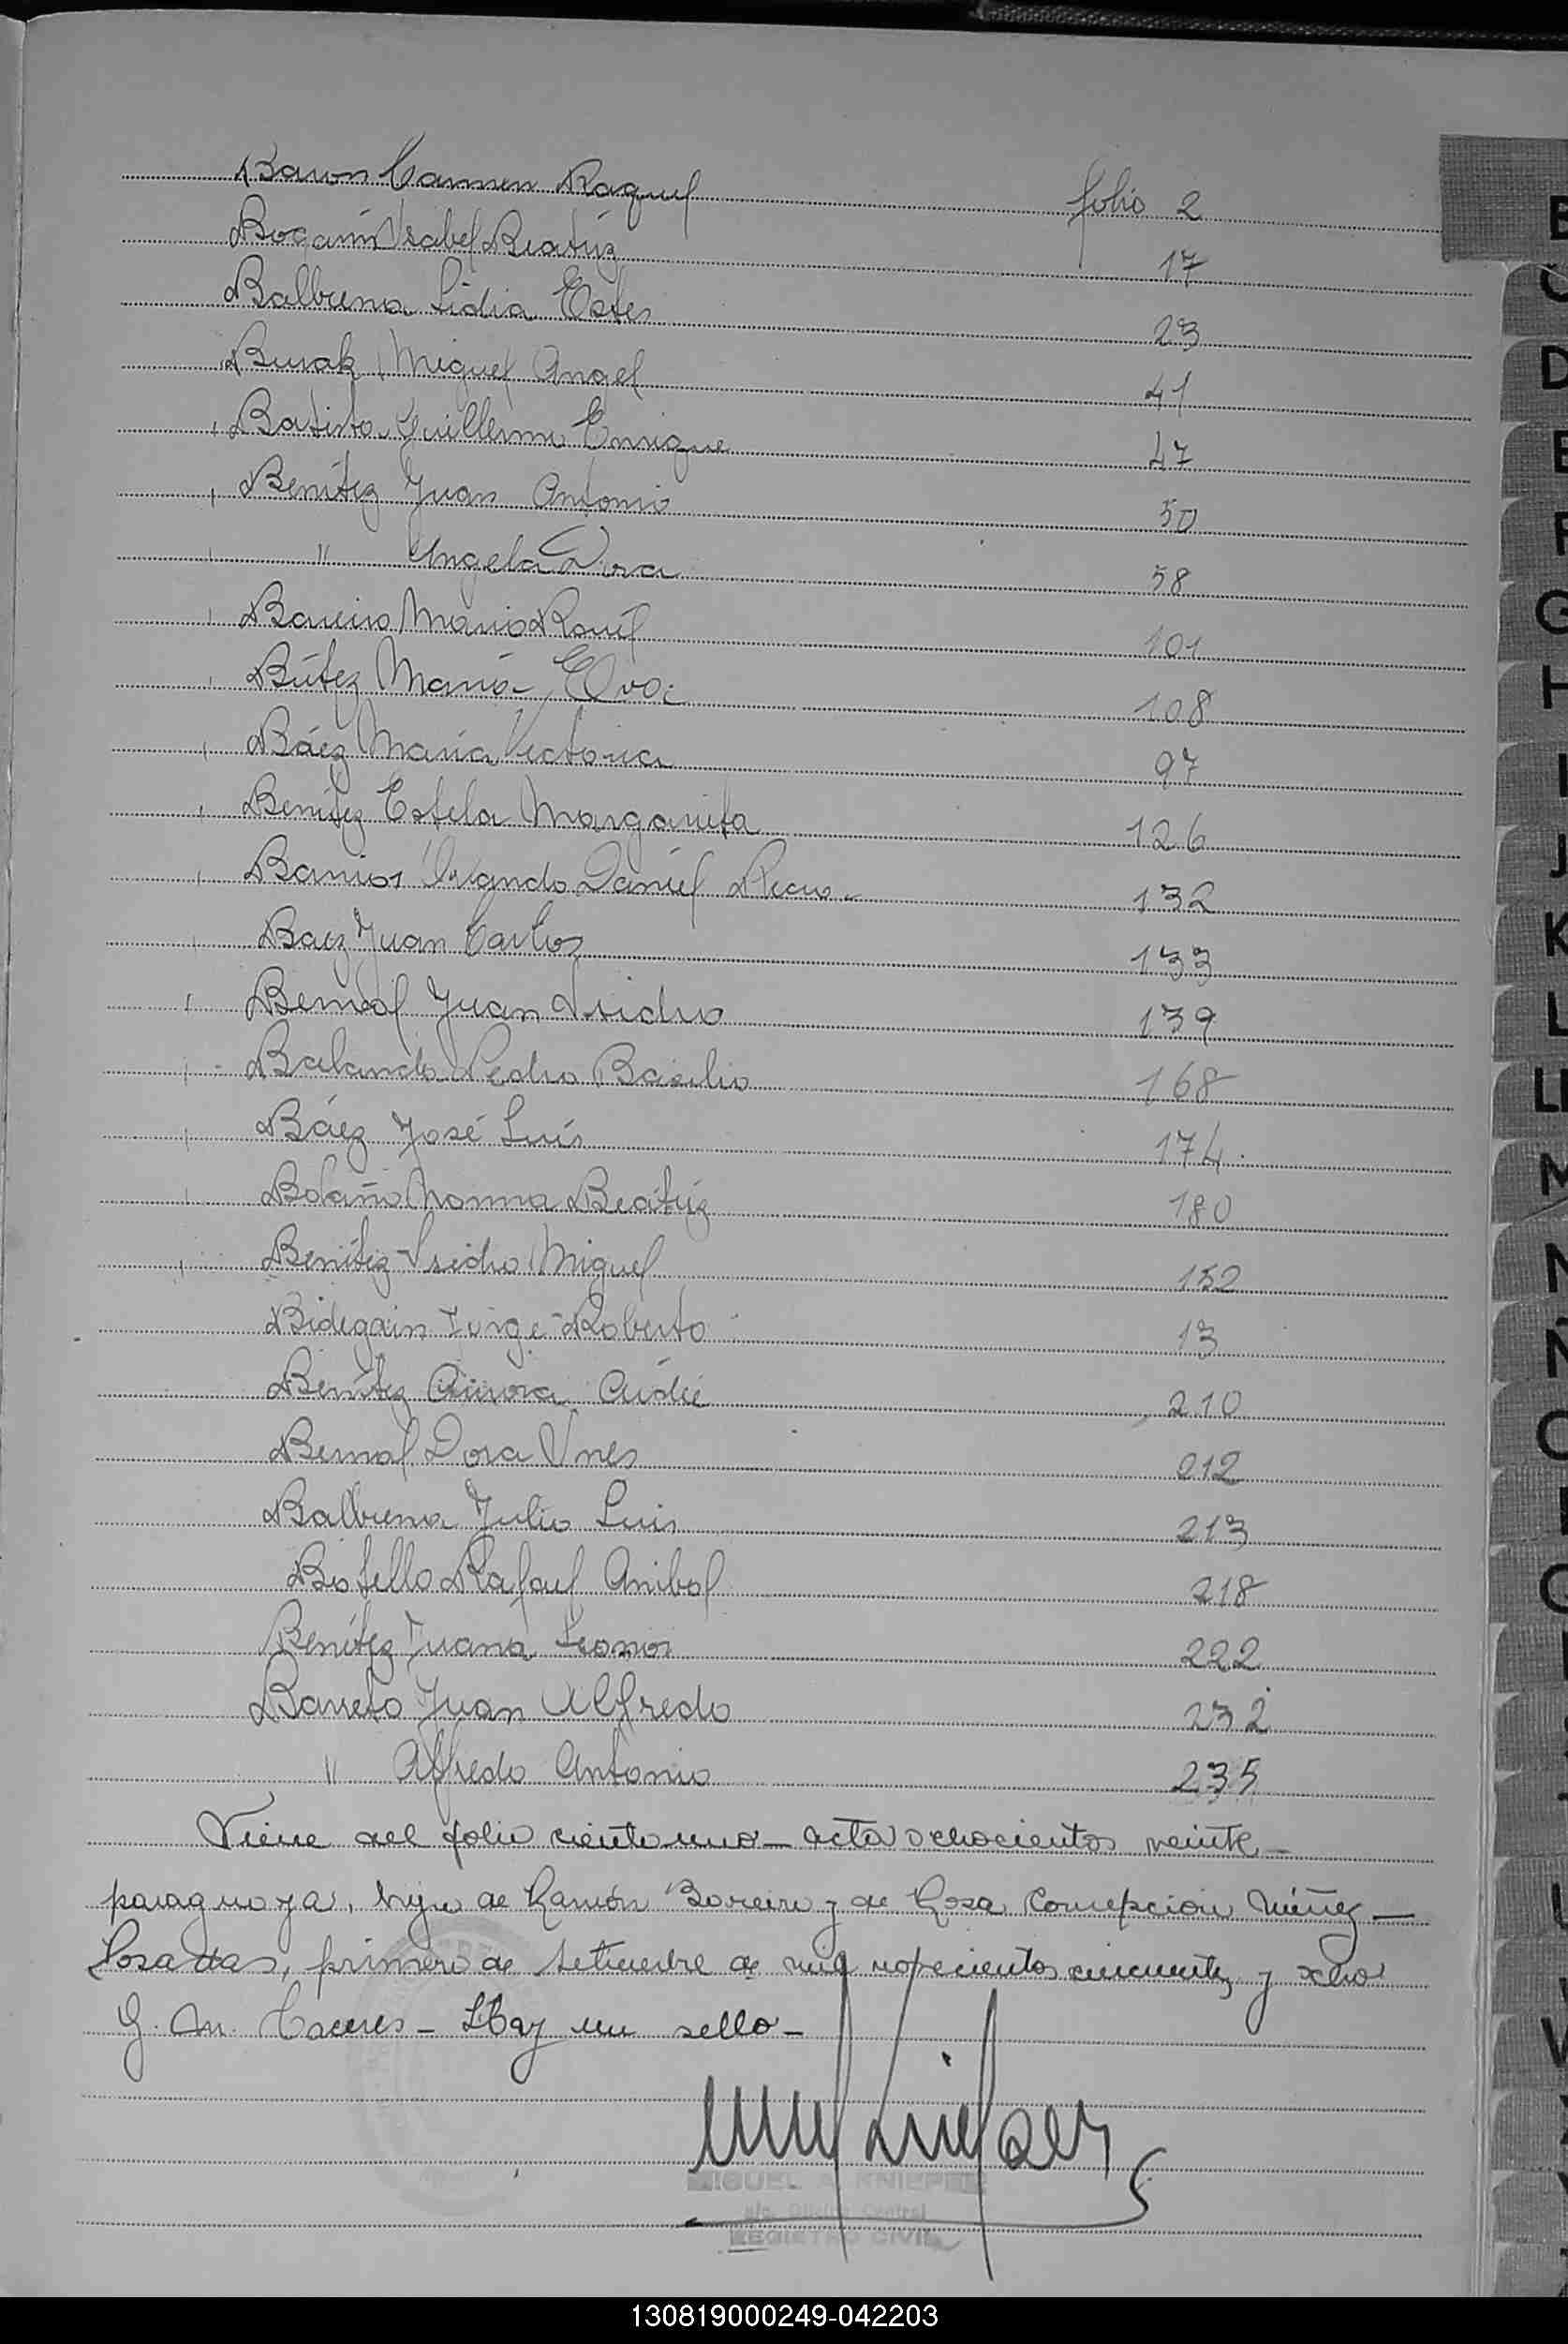 Baron Carmen Raquel folio 2
Bogarín Isabel Beatríz 17
Balbuena Lidia Ester 23
Busak Miguel Angel 41
Batista Guillermo Enrique 47
Benítez Juan Antonio 50
" Angela Dora 58
Bareiro Mario Raúl 101
Bútez María Eva 108
Báez María Victoria 97
Benítez Estela Margarita 126
Barrios Orlando Daniel 132
Baez Juan Carlos 133
Bernal Juan Isidro 139
Balando Pedro Basilio 168
Báez José Luís 174
Bolaño Norma Beatríz 180
Benítez Isidro Miguel 152
Bidegain Jorge Roberto 13
Benítez Aurora 210
Bernal Dora Ines 212
Balbuena Julio Luis 213
Botello Rafael Anibal 218
Benítez Juana Leonor 222
Barreto Juan Alfredo 232
" Alfredo Antonio 235
Viene del folio ciento uno - acta ochocientos veinte -
paraguaya, hija de Ramón Bareiro y de Rosa Concepción Núñez -
Posadas, primero de Setiembre de mil novecientos cincuenta y ocho
G. M. Caceres - Hay un sello -
MIGUEL A. KNIEPE
Oficina Central
REGISTRO CIVIL
B
C
D
E
F
G
H
I
J
K
L
Ll
M
N
Ñ
O
130819000249-042203